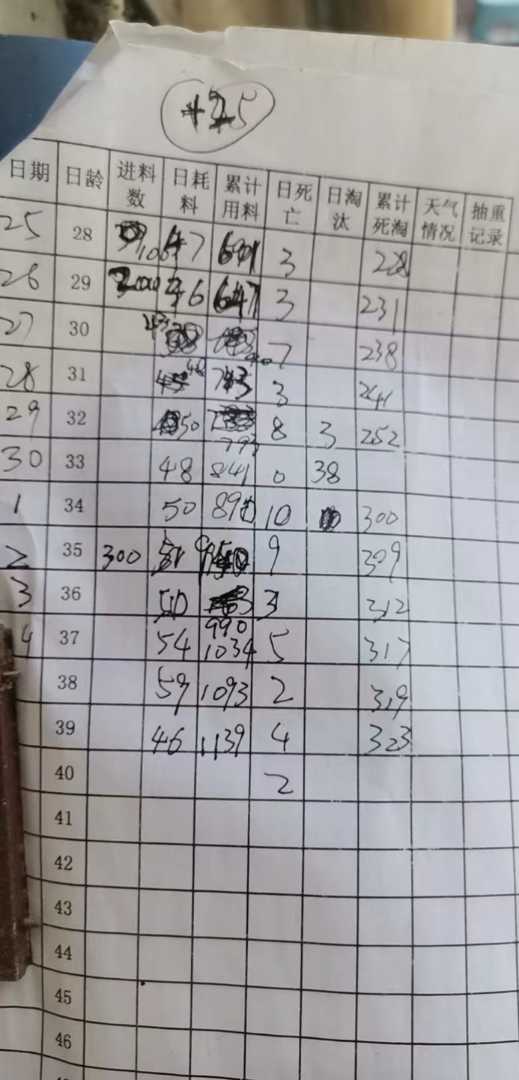 日期 日龄 进料数 日耗料 累计用料 日死亡 日淘汰 累计死淘 天气情况 抽重记录
25 28 47 3 228
26 29 46 647 3 231
27 30 7 238
28 31 46 743 3 241
29 32 50 793 8 3 252
30 33 48 841 0 38
1 34 50 10 300
2 35 300 9 309
3 36 50 990 3 312
4 37 54 1034 5 317
38 59 1093 2 319
39 46 1139 4 323
40 2
41
42
43
44
45
46